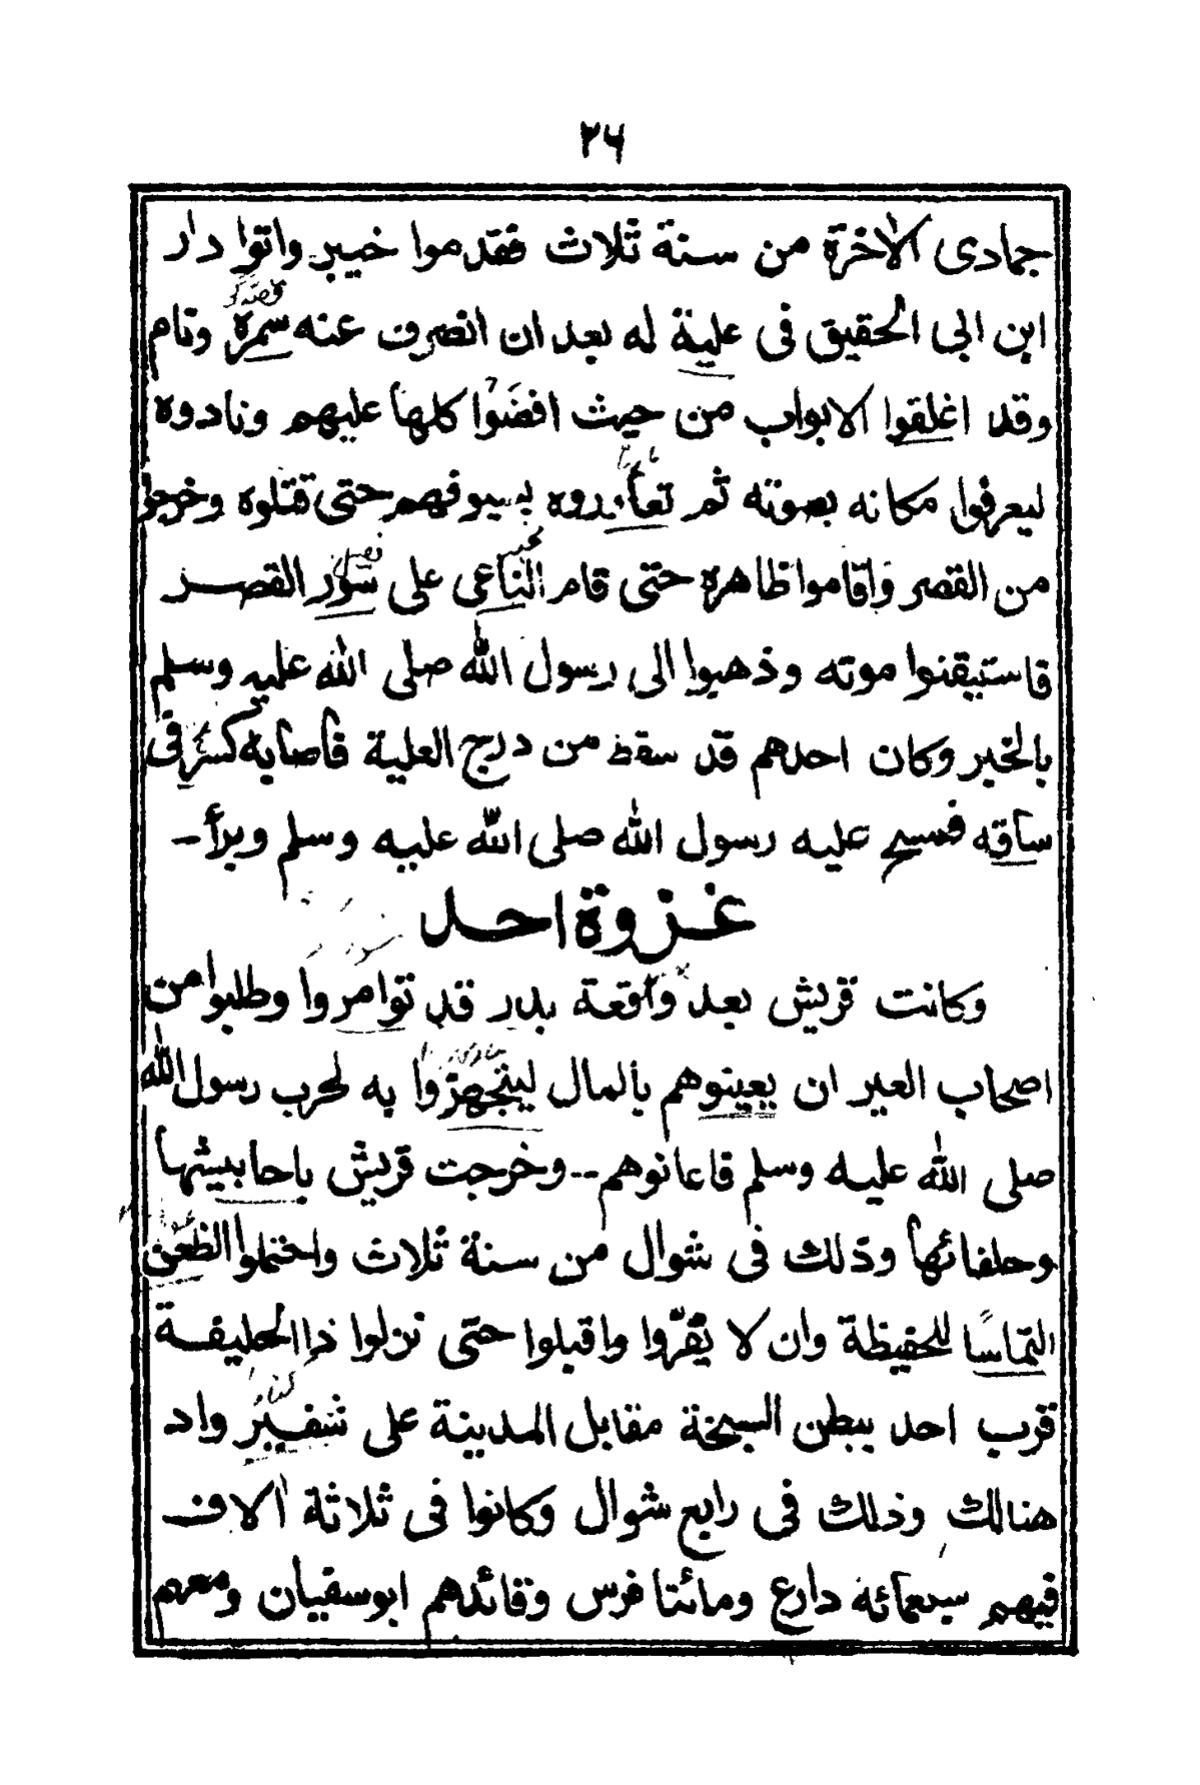 ٢٦
جمادى الاخرة من سنة ثلاث فقدموا خيبر واتوا دار
ابن ابى الحقيق فى علية له بعد ان انصرف عنه سمره ونام
وقد اغلقوا الابواب من حيث افضَوْا كلها عليهم ونادوه
ليعرفوا مكانه بصوته ثم تعاوروه بسيوفهم حتى قتلوه وخرجوا
من القصر واقاموا ظاهره حتى قام الناعى على سور القصر
فاستيقنوا موته وذهبوا الى رسول الله صلى الله عليه وسلم
بالخبر وكان احدهم قد سقط من درج العلية فاصابه كسر فى
ساقه فمسح عليه رسول الله صلى الله عليه وسلم وبرأ -
غزوة احد
وكانت قريش بعد واقعة بدر قد توامروا وطلبوا من
اصحاب العير ان يعينوهم بالمال ليتجهزوا به لحرب رسول الله
صلى الله عليه وسلم فاعانوهم -- وخرجت قريش باحابيشها
وحلفائها وذلك فى شوال من سنة ثلاث واحتملوا الظعن
التماسًا للحفيظة وان لا يفرّوا واقبلوا حتى نزلوا ذا الحليفة
قرب احد ببطن السبخة مقابل المدينة على شفير واد
هنالك وذلك فى رابع شوال وكانوا فى ثلاثة الاف
فيهم سبعمائة دارع ومائتا فرس وقائدهم ابوسفيان ومعهم